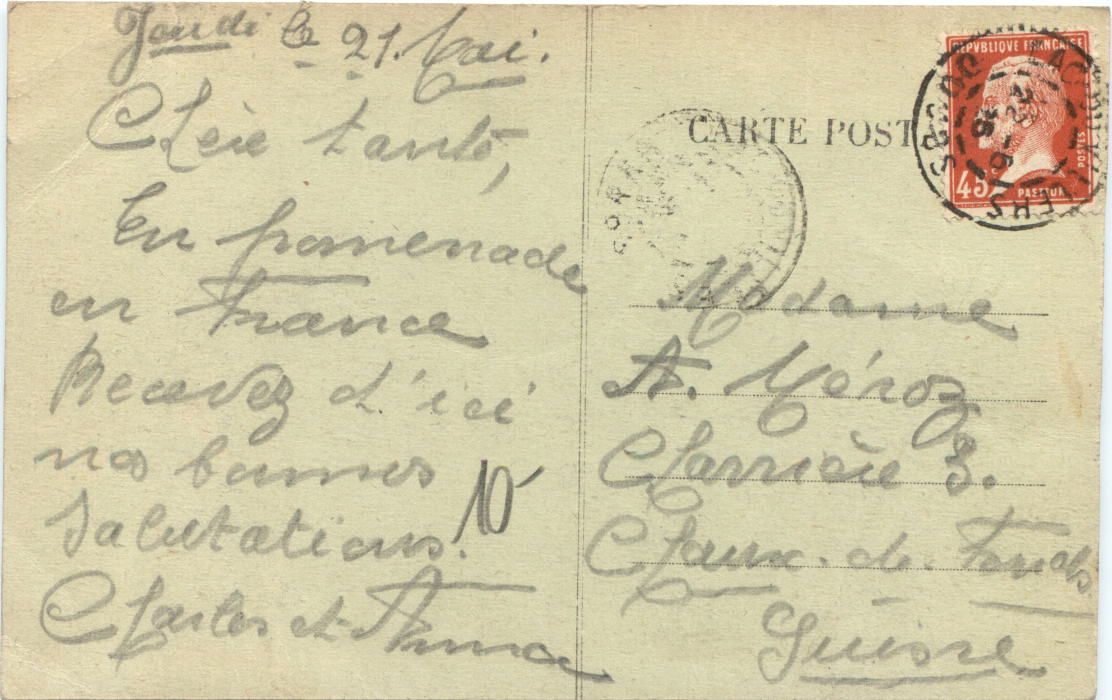 Jeudi le 21. Mai.
Chère tante,
En promenade
en France
Recevez d'ici
nos bonnes
salutations.
Charles et Anna
10
CARTE POST
REPVBLIQUE FRANÇAISE
45c
POSTES
PASTEUR
Madame
A. Méroz
Charrière 3.
Chaux-de-Fonds
Suisse